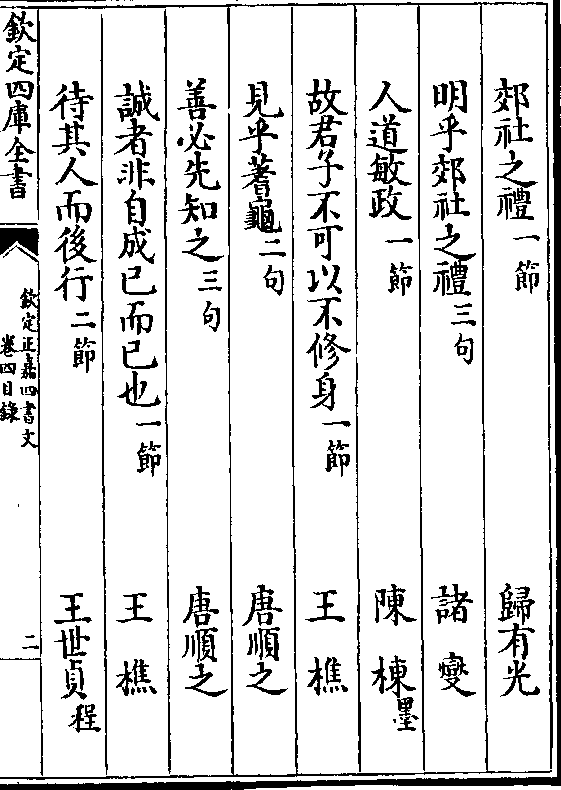 郊社之禮一節 歸有光
明乎郊社之禮三句 諸燮
人道敏政一節 陳棟墨
故君子不可以不修身一節 王樵
見乎蓍龜二句 唐順之
善必先知之三句 唐順之
誠者非自成已而已也一節 王樵
待其人而後行二節 王世貞程
欽定四庫全書
欽定正嘉四書文
卷四目錄
二